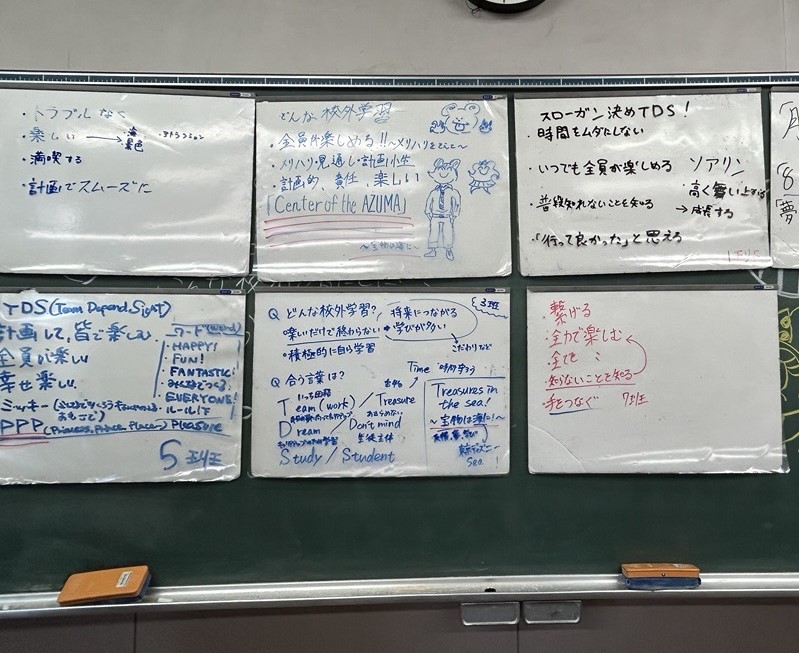 ・トラブルなく
・楽しい → 海 景色 ・アトラクション
・満喫する
・計画でスムーズに
どんな校外学習
・全員が楽しめる!!〜メリハリをもって〜
・メリハリ・見通し・計画小生
・計画的、責任、楽しい
「Center of the AZUMA」
〜宝物は海に〜
スローガン決めTDS!
・時間をムダにしない
・いつでも全員が楽しめる
・普段知れないことを知る
・「行って良かった」と思える
ソアリン
・高く舞い上がる
→成長する
「8
「夢
TDS(Team Depend Sight)
計画して、皆で楽しむ
全員が楽しい
幸せ 楽しい
PPP(Princess, Prince, Place) Pleasure
ワード(word)
・HAPPY!
・FUN!
・FANTASTIC!
・みんなでつくる
・EVERYONE!
・ルール!下
5班
Q どんな校外学習?
3班
・将来につながる
・楽しいだけで終わらない → 学びが多い
・積極的に自ら学習
こだわりなど
Q 合う言葉は?
Time 時間守ろう
いっち団結
Team (work) / Treasure
Dream / Don't mind
あきらめない
生徒主体
Study / Student
Treasures in
the sea!
〜宝物は海に!〜
東京ディズニー
Sea!
・繋げる
・全力で楽しむ
・全てを 〃
・知らないことを知る
・手をつなぐ 7班